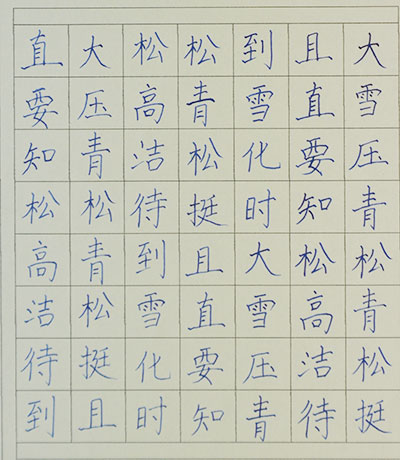 大雪压青松青松挺
且直要知松高洁待
到雪化时大雪压青
松青松挺且直要知
松高洁待到雪化时
大压青松青松挺且
直要知松高洁待到